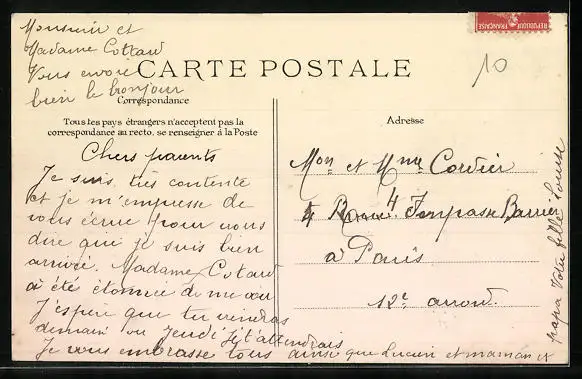 Monsieur et
Madame Cottard
Vous envoie
bien le bonjour
CARTE POSTALE
Correspondance
Tous les pays étrangers n'acceptent pas la
correspondance au recto. se renseigner à la Poste
Chers parents
Je suis très contente
et je m'empresse de
vous écrire pour vous
dire que je suis bien
arrivée. Madame Cotard
a été étonnée de me voir
J'espère que tu viendras
demain ou Jeudi je t'attendrais
Je vous embrasse tous ainsi que Lucien et maman et
papa Votre fille Louise
Adresse
Mon et Mme Cordier
4 Impasse Barrier
à Paris
12e arrond.
10
FRANÇAISE